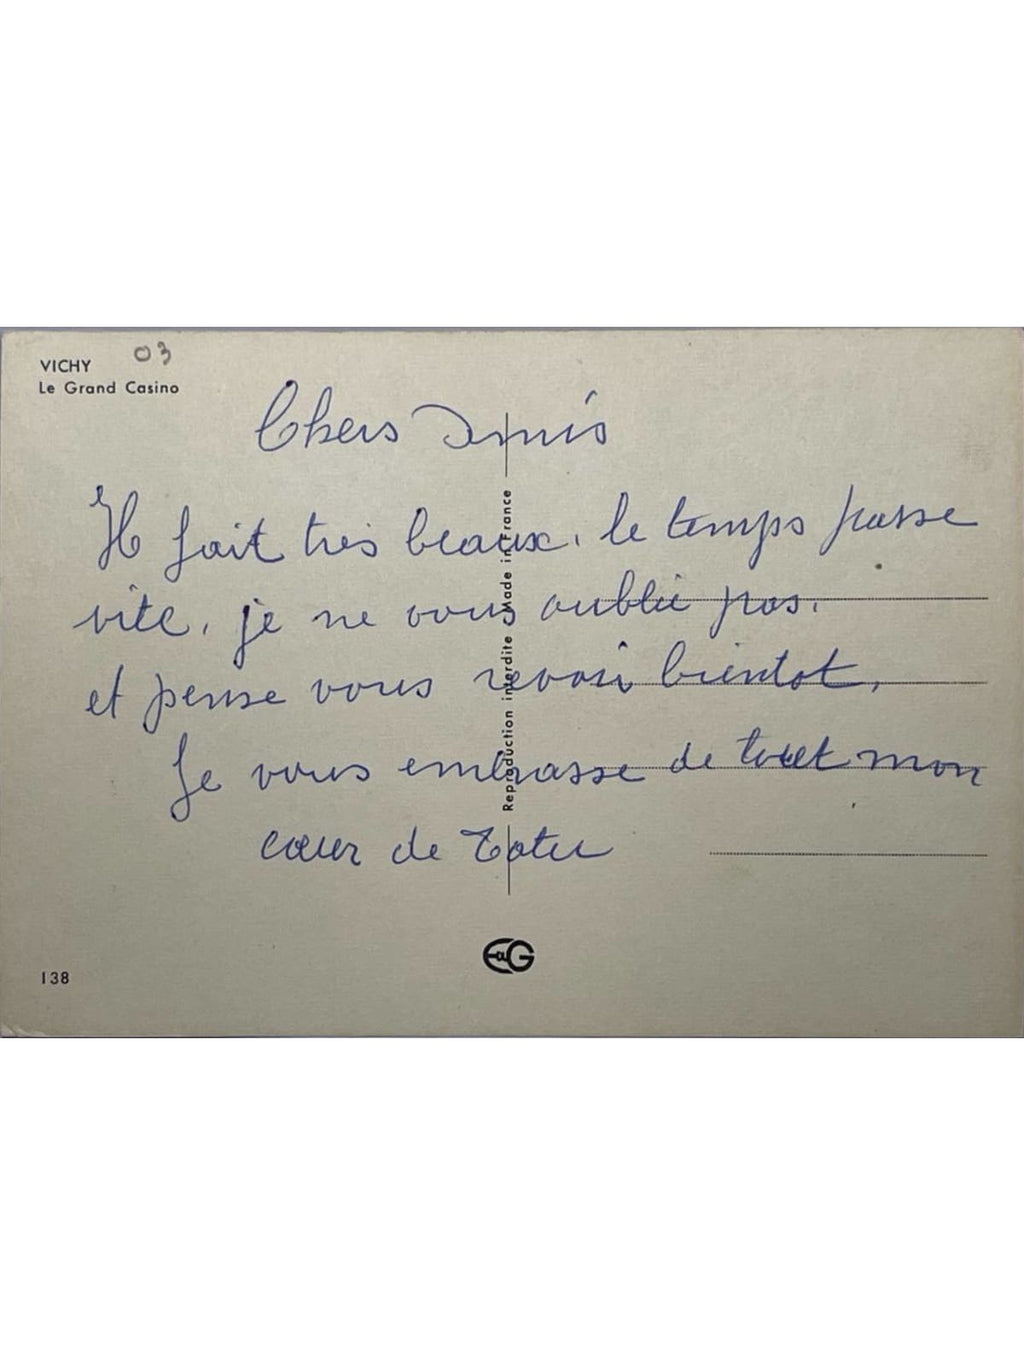 VICHY 03
Le Grand Casino
Chers Amis
Il fait très beaux, le temps passe
vite, je ne vous oublie pas.
et pense vous revoir bientot,
Je vous embrasse de tout mon
cœur de
Reproduction interdite Made in France
EG
138